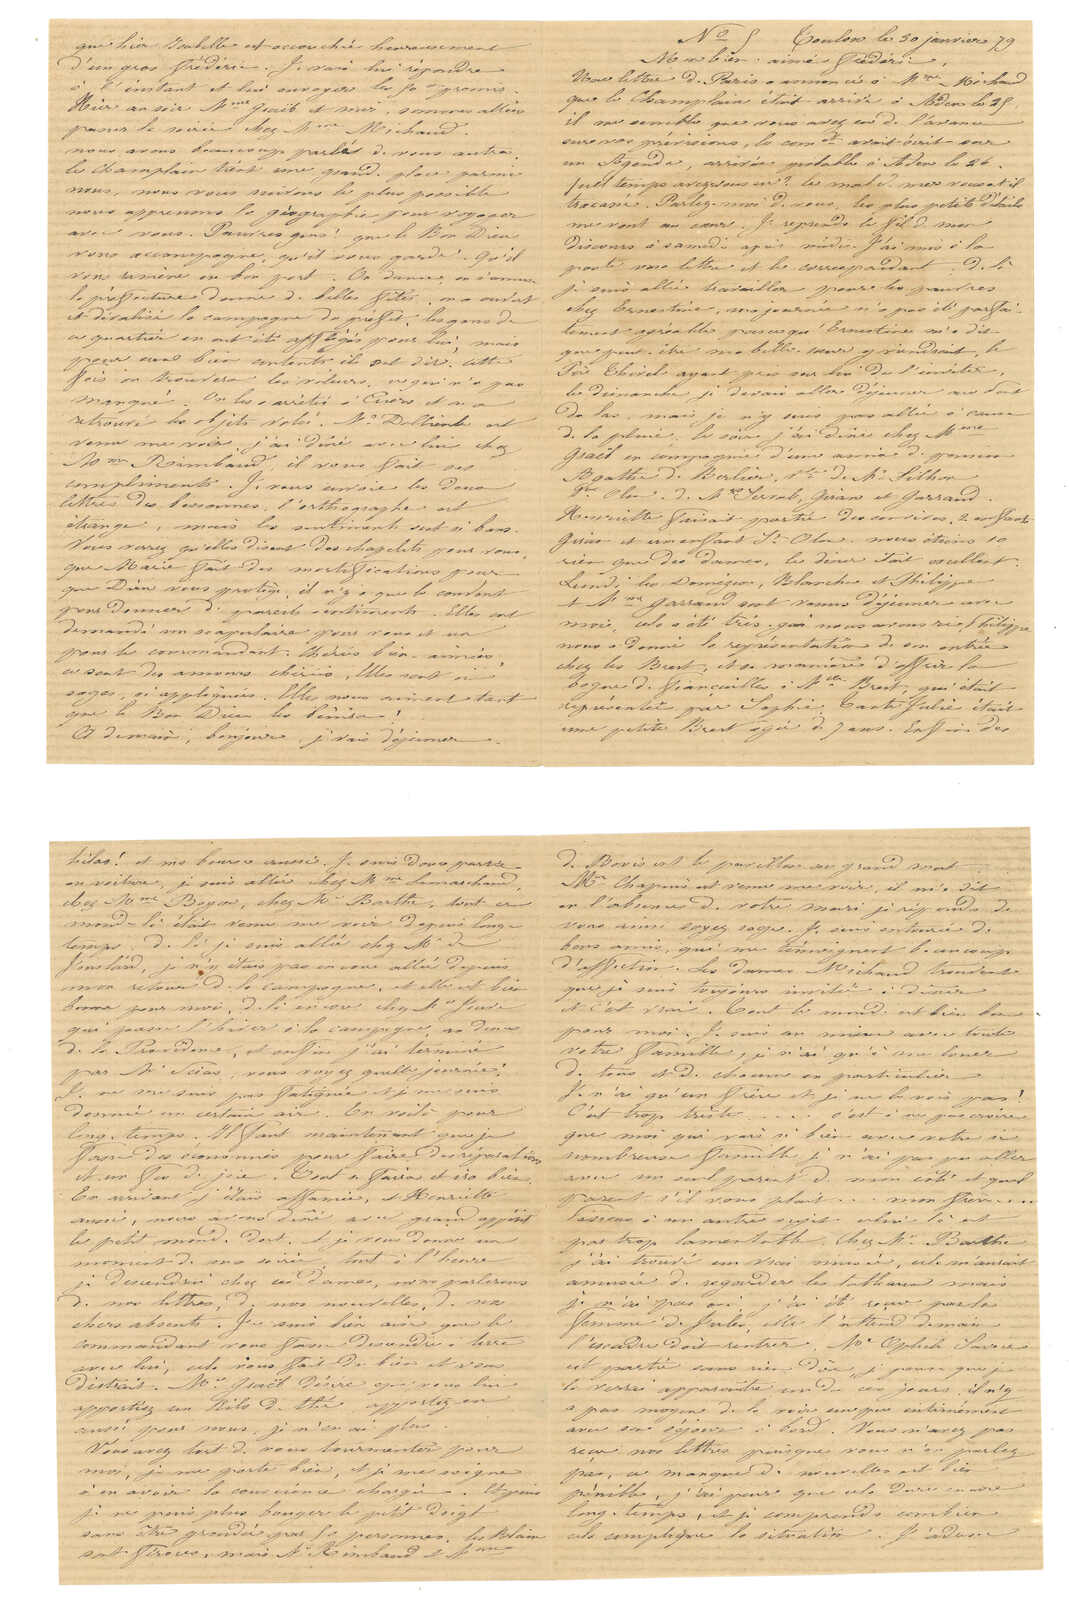 No 5 Toulon le 30 janvier 79
Mon bien aimé Frédéric,
Une lettre de Paris a annoncé à Mme Michaud
que le Champlain était arrivé à Aden le 25
il me semble que vous avez eu de l'avance
sur vos prévisions, le comdt avait écrit sur
un Agenda, arrivée probable à Aden le 26.
quel temps avez-vous eu? le mal de mer vous a-t-il
. Parlez-moi de vous, les plus petits détails
me vont au cœur. Je reprends le fil de mon
discours à samedi après midi. J'ai mis à la
poste une lettre et le correspondant. De là
je suis allée travailler pour les pauvres
chez Ernestine, ma journée n'a pas été parfai-
tement agréable parce qu'Ernestine m'a dit
que peut-être ma belle-sœur y viendrait, le
Père ayant pris sur lui de l'inviter,
le dimanche je devais aller déjeuner au
de las, mais je n'y suis pas allée à cause
de la pluie. le soir j'ai dîné chez Mme
Gsell en compagnie d'une amie de pension
Agathe de
St Olen. de Mme et Garraud.
Henriette faisait partie des convives, 2 enfants
et un enfant St Olen. nous étions 10
rien que des dames, le dîner était excellent.
Lundi les Domézon, Blanche et Philippe
et Mme Garraud sont venus déjeuner avec
moi, cela a été très gai, nous avons ri, Philippe
nous a donné la représentation de son entrée
chez les Brest, et sa manière d'offrir la
bague de fiançailles à Melle Brest, qui était
représentée par Sophie. Tante Julie était
une petite Brest agée de 7 ans. Enfin des
hélas! et ma bourse aussi. Je suis donc partie
en voiture, je suis allée chez Mme Lamarchand,
chez Mme Boyer, chez Me Barthe, tout ce
monde là était venu me voir depuis long-
temps. de là je suis allée chez Me de
, je n'y étais pas encore allée depuis
mon retour de la campagne, et elle est bien
bonne pour moi, de là encore chez Me
qui passe l'hiver à la campagne, au
de la Providence, et enfin j'ai terminé
par Me , vous voyez quelle journée!
Je ne me suis pas fatiguée et je me suis
donnée un certain air. En voilà pour
long-temps. Il faut maintenant que je
fasse des économies pour faire des réparations
et un feu de joie. Tout se fera et ira bien.
En arrivant j'étais affamée, et Henriette
aussi, nous avons dîné avec grand appétit
le petit monde dort et je vous donne un
moment de ma soirée, tout à l'heure
je descendrai chez ces dames, nous parlerons
de nos lettres, de nos nouvelles, de nos
chers absents. Je suis bien aise que le
commandant vous fasse descendre à terre
avec lui, cela vous fait du bien et vous
distrait. Me Gsell désire que vous lui
apportiez un kilo de thé, apportez-en
aussi pour nous, je n'en ai plus.
Vous avez tort de vous tourmenter pour
moi, je me porte bien, et je me soigne
à en avoir la conscience chargée. Et puis
je ne puis plus bouger le petit doigt
sans être grondée par 50 personnes, les
sont féroces, mais Me Rimbaud et Mme
de Bovis est le pavillon au grand mat
Mr Chapuis est venu me voir, il m'a dit
en l'absence de votre mari je réponds de
vous ainsi soyez sage. Je suis entourée de
bons amis, qui me témoignent beaucoup
d'affection. Les dames Michaud trouvent
que je suis toujours invitée à dîner
et c'est vrai. Tout le monde est bien bon
pour moi. Je suis au mieux avec toute
votre famille, je n'ai qu'à me louer
de tous et de chacun en particulier
Je n'ai qu'un frère et je ne le vois pas!
C'est trop triste .... c'est à ne pas croire
que moi qui vais si bien avec votre si
nombreuse famille je n'ai pas pu aller
avec un seul parent de mon côté et quel
parent s'il vous plait .... mon frère ....
Passons à un autre sujet celui là est
par trop lamentable. Chez Me Barthe
j'ai trouvé un vrai musée, cela m'aurait
amusée de regarder les tableaux mais
je n'ai pas osé, j'ai été reçue par la
femme de Jules, elle l'attend demain
l'escadre doit rentrer. Mr
est parti sans rien dire, je pense que je
le verrai apparaître un de ces jours, il n'y
a pas moyen de le voir un peu intimement
avec son séjour à bord. Vous n'avez pas
reçu nos lettres puisque vous n'en parlez
pas, ce manque de nouvelles est bien
pénible, j'ai peur que cela dure encore
long-temps, et je comprends combien
cela complique la situation.
que hier Isabelle est accouchée heureusement
d'un gros Frédéric. Je vais lui répondre
à l'instant et lui envoyer les 50f promis.
Hier au soir Mme Gsell et moi, sommes allées
passer la soirée chez Mme Michaud.
nous avons beaucoup parlé de vous autres.
le Champlain tient une grande place parmi
nous, nous vous suivons le plus possible
nous apprenons la géographie pour voyager
avec vous. Pauvres gens! que le Bon Dieu
vous accompagne, qu'il vous garde! Qu'il
vous ramène au bon port. On danse, on s'amuse
la préfecture donne de belles fêtes, on a ouvert
et dévalisé la campagne du préfet, les gens de
ce quartier en ont été affligés pour lui, mais
pour eux bien contents ils ont dit: cette
fois on trouvera les voleurs, ce qui n'a pas
manqué. On les a arrêtés à Cuers et on a
retrouvé les objets volés. Mr est
venu me voir, j'ai dîné avec lui chez
Mme Rimbaud, il vous fait ses
compliments. Je vous envoie les deux
lettres des bessonnes, l'orthographe est
étrange, mais les sentiments sont si bons.
Vous verrez qu'elles disent des chapelets pour vous,
que Marie fait des mortifications pour
que Dieu vous protège, il n'y a que le couvent
pour donner de pareils sentiments. Elles ont
demandé un scapulaire pour vous et un
pour le commandant. Chéries bien-aimées,
ce sont des amours chéris, Elles sont si
sages, si appliquées. Elles nous aiment tant
que le Bon Dieu les bénisse!
A demain, bonjour je vais déjeuner.